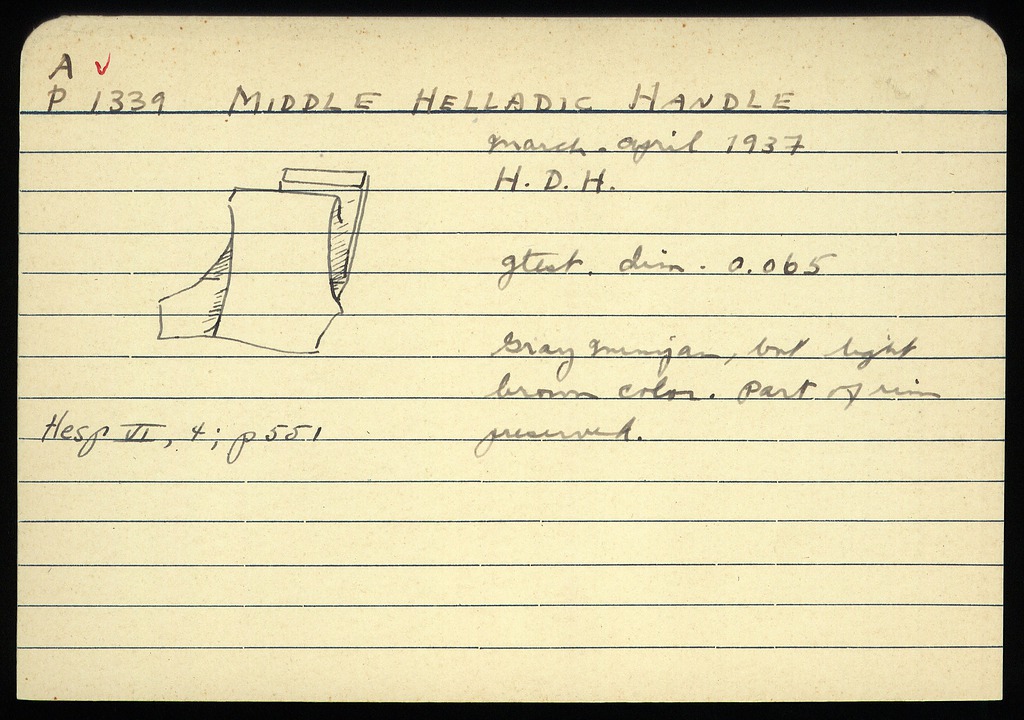 A ✓
P 1339 MIDDLE HELLADIC HANDLE
March - April 1937
H. D. H.
gtest. dim. 0.065
Gray minyan, but light
brown color. Part of rim
preserved.
Hesp VI, 4; p 551